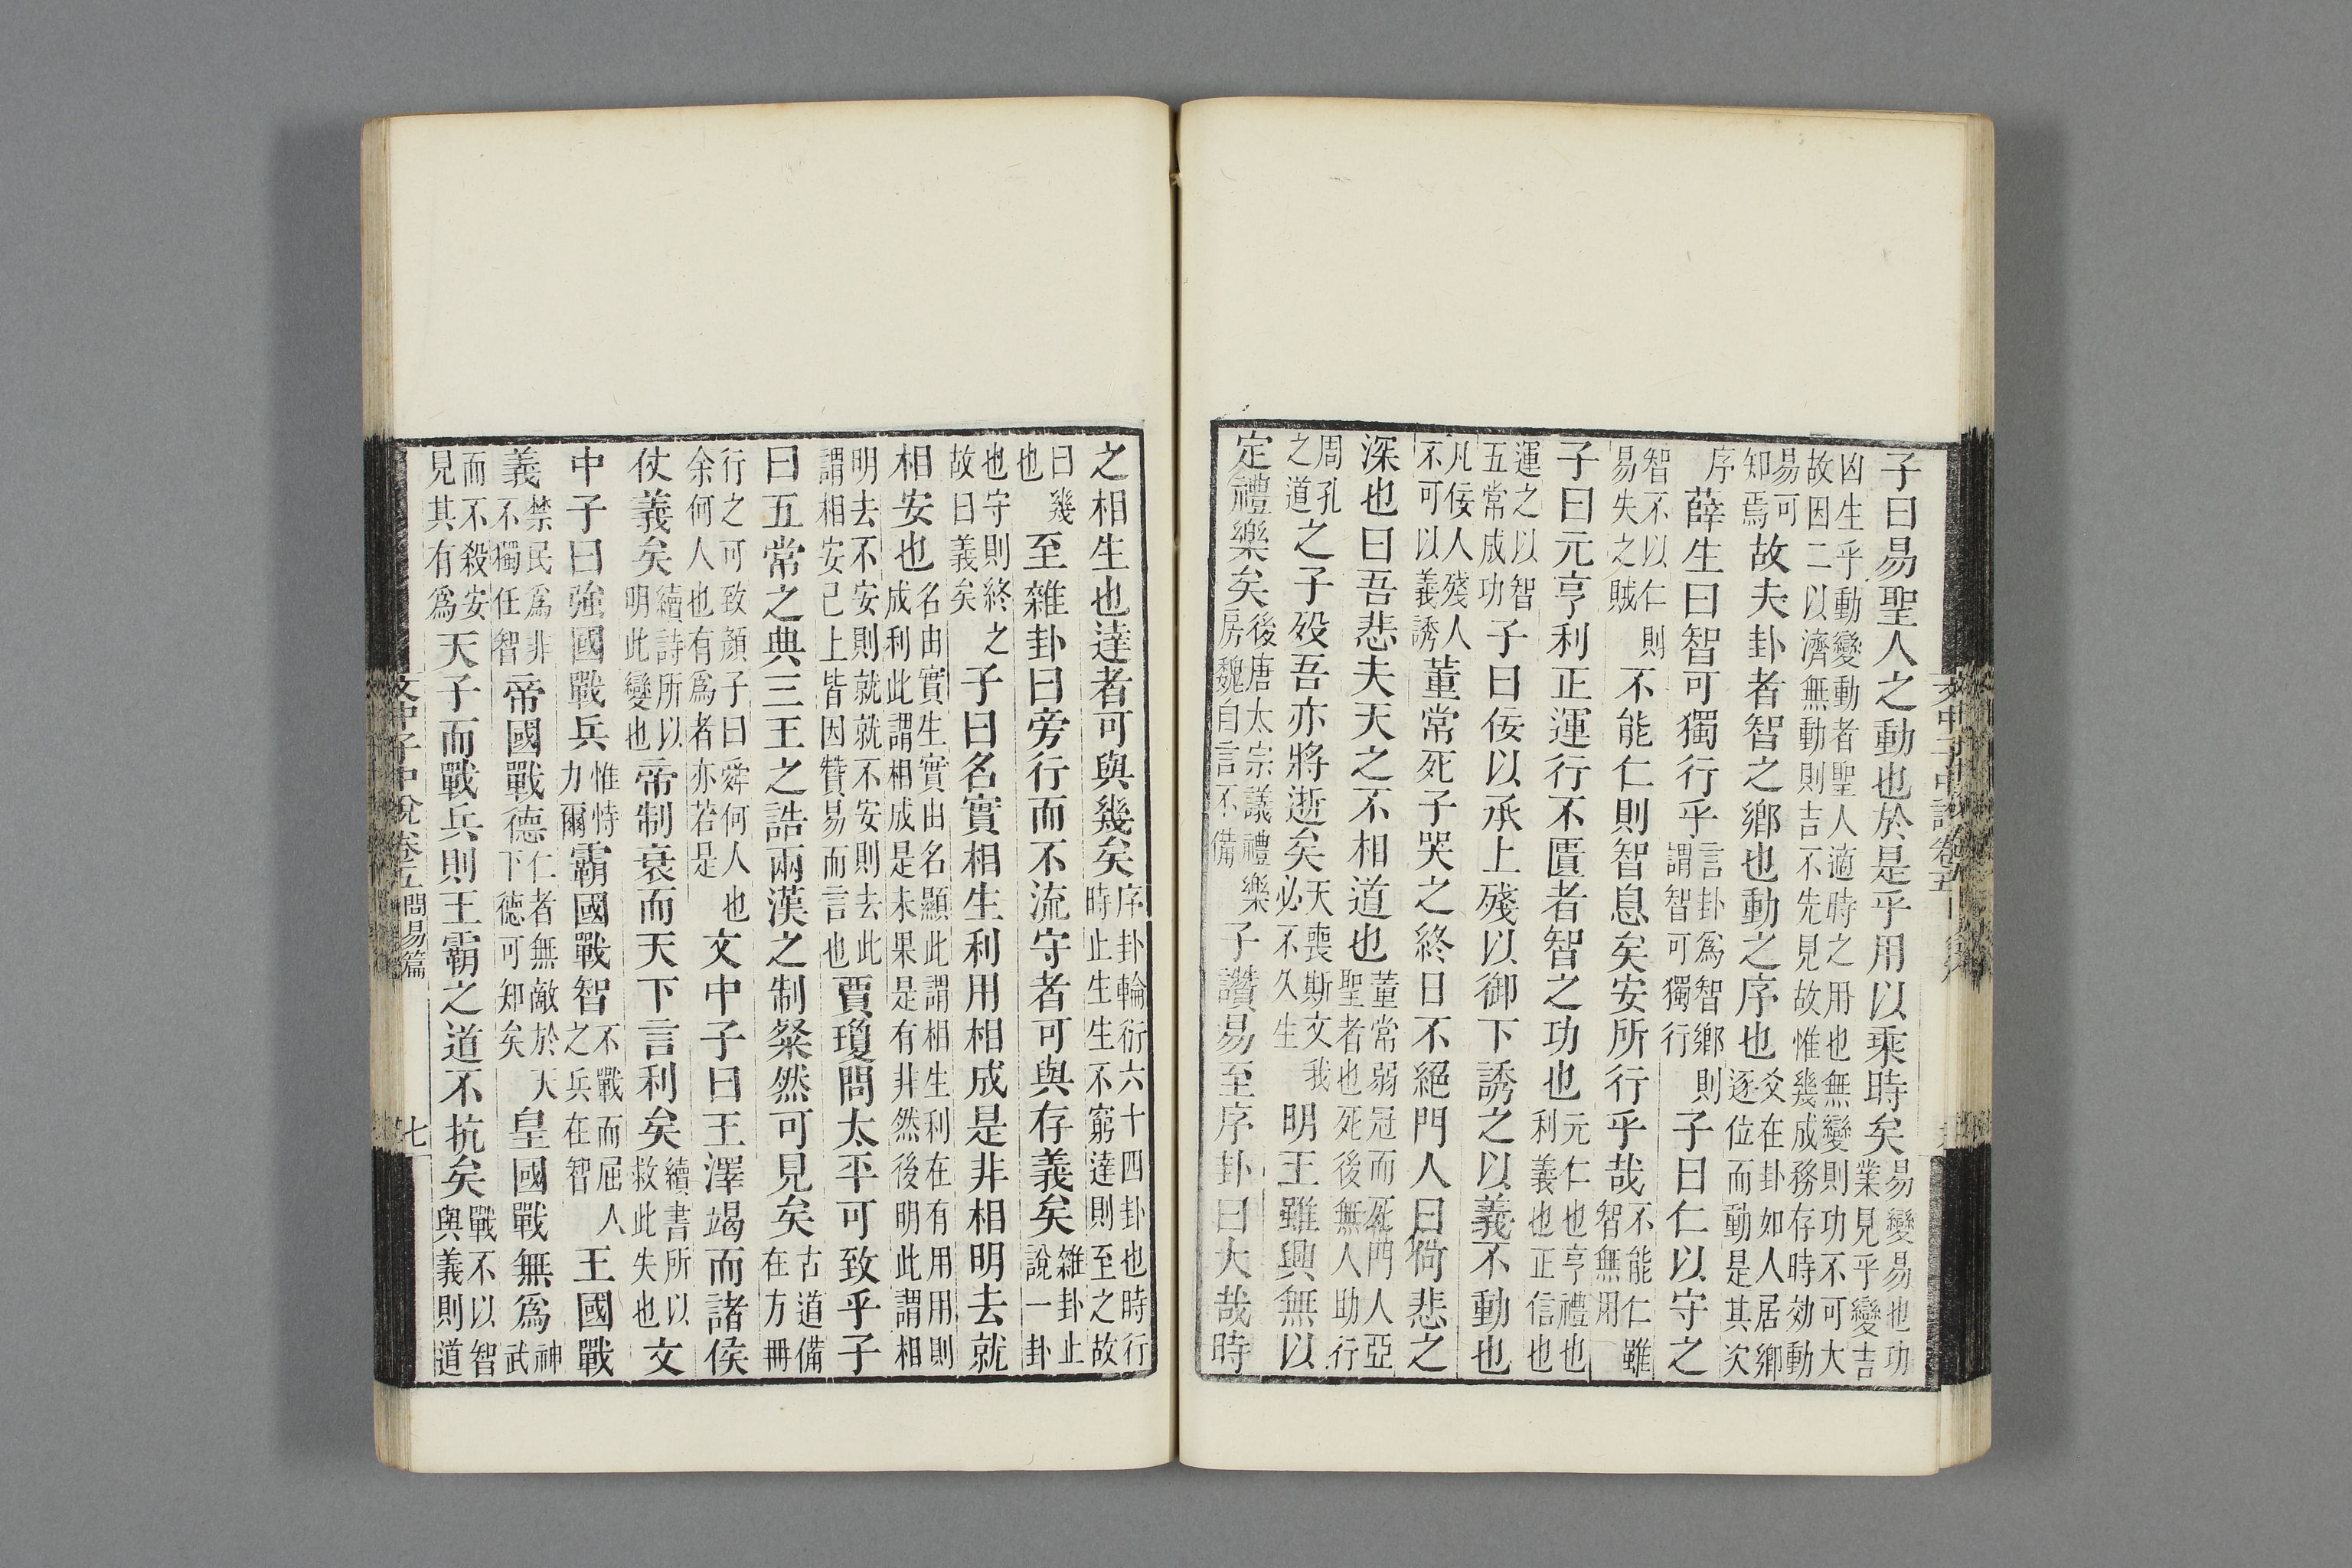 子曰易聖人之動也於是乎用以乘時矣易變易也功業見乎變吉
凶生乎動變動者聖人適時之用也無變則功不可大故因二以濟無動則吉不先見故惟幾成務存時効動
易可知焉故夫卦者智之鄉也動之序也爻在卦如人居鄉逐位而動是其次
序薛生曰智可獨行乎言卦爲智鄉則謂智可獨行子曰仁以守之
智不以仁則易失之賊不能仁則智息矣安所行乎哉不能仁雖智無用
子曰元亨利正運行不匱者智之功也元仁也亨禮也利義也正信也
運之以智五常成功子曰佞以承上殘以御下誘之以義不動也
凡佞人殘人不可以義誘董常死子哭之終日不絕門人曰何悲之
深也曰吾悲夫天之不相道也董常弱冠而死門人亞聖者也死後無人助行
周孔之道之子歿吾亦將逝矣天喪斯文我必不久生明王雖興無以
定禮樂矣後唐太宗議禮樂房魏自言不備子讚易至序卦曰大哉時
之相生也達者可與幾矣序卦輪衍六十四卦也時行時止生生不窮達則至之故
曰幾也至雜卦曰旁行而不流守者可與存義矣雜卦止說一卦
也守則終之故曰義矣子曰名實相生利用相成是非相明去就
相安也名由實生實由名顯此謂相生利在有用用則成利此謂相成是未果是有非然後明此謂相
明去不安則就就不安則去此謂相安已上皆因贊易而言也賈瓊問太平可致乎子
曰五常之典三王之誥兩漢之制粲然可見矣古道備在方冊
行之可致顏子曰舜何人也余何人也有爲者亦若是文中子曰王澤竭而諸侯
仗義矣續詩所以明此變也帝制衰而天下言利矣續書所以救此失也文
中子曰強國戰兵惟恃力爾霸國戰智不戰而屈人之兵在智王國戰
義禁民爲非不獨任智帝國戰德仁者無敵於天下德可知矣皇國戰無爲神武
而不殺安見其有爲天子而戰兵則王霸之道不抗矣戰不以智與義則道
文中子中說卷五問易篇 七